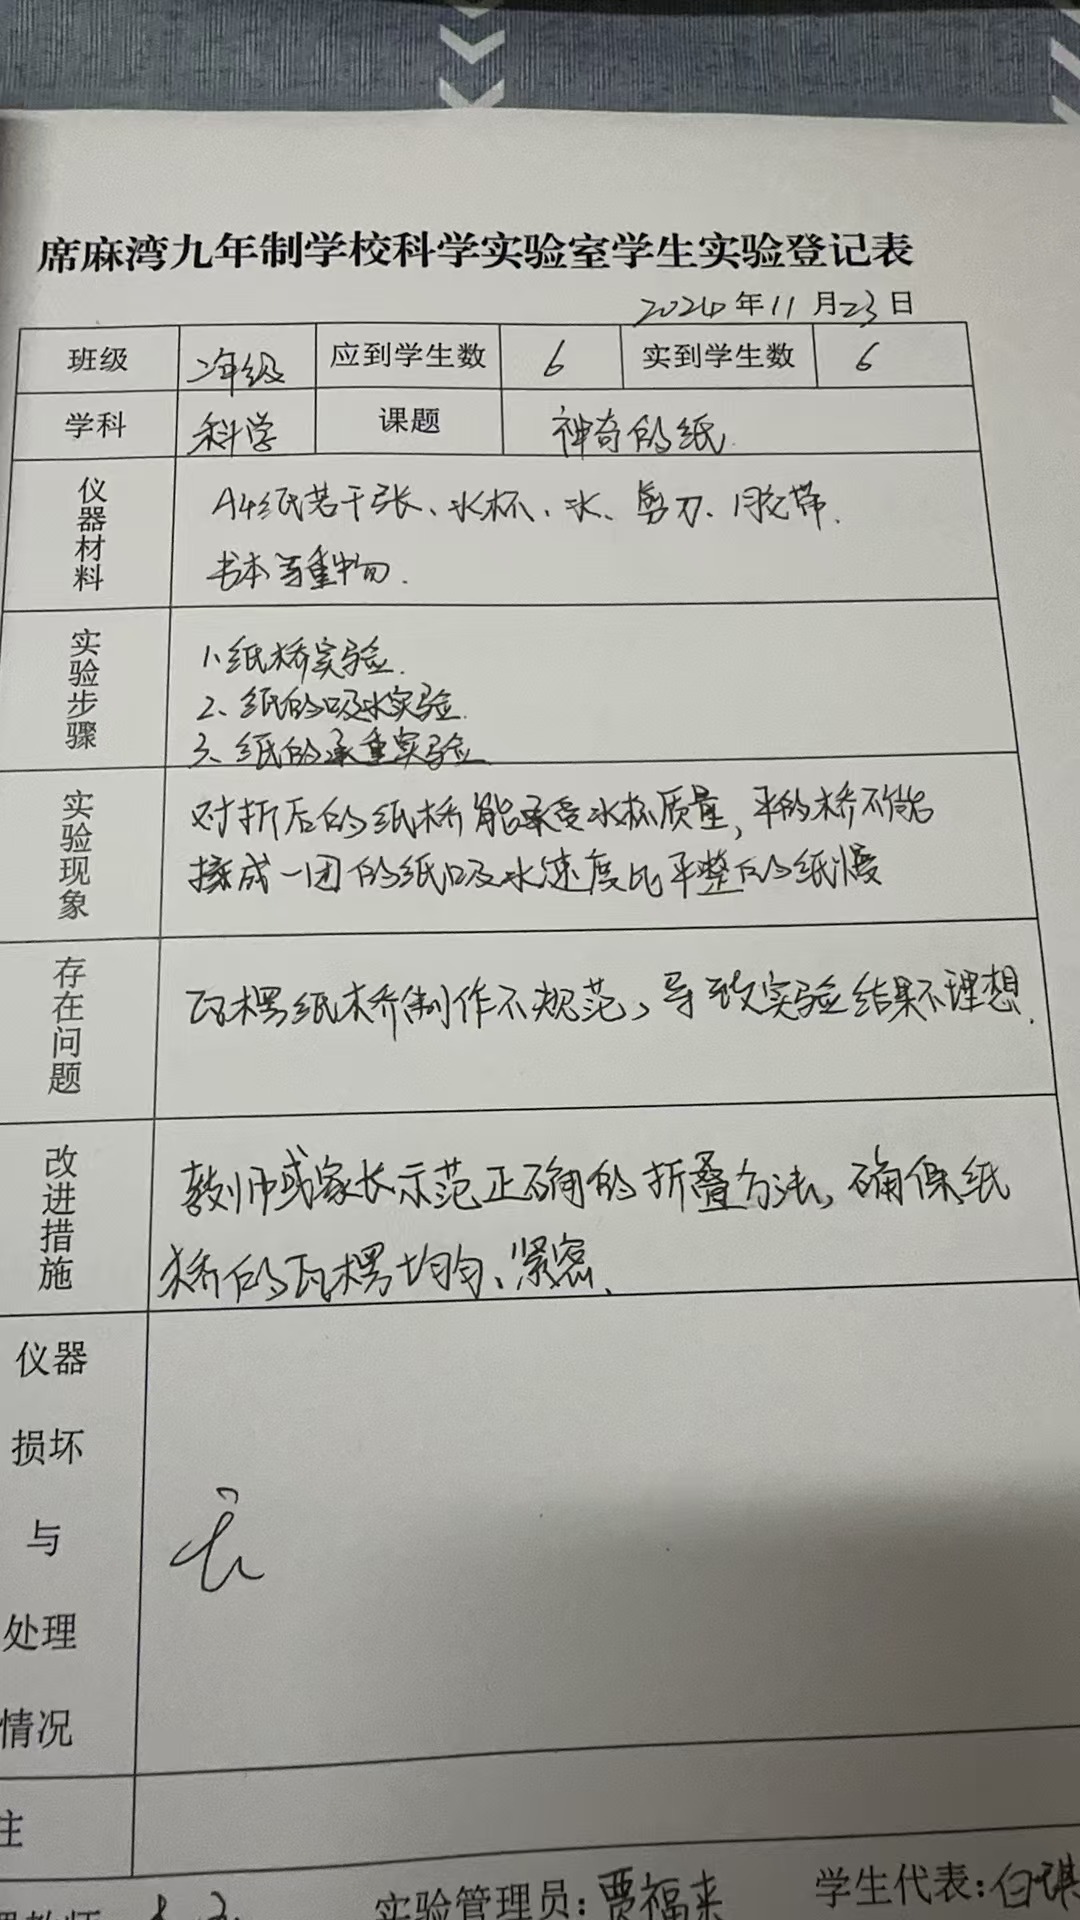 席麻湾九年制学校科学实验室学生实验登记表
2024年11月23日
班级 二年级 应到学生数 6 实到学生数 6
学科 科学 课题 神奇的纸
仪器材料 A4纸若干张、水杯、水、剪刀、胶带.
书本等重物.
实验步骤 1、纸桥实验.
2、纸的吸水实验.
3、纸的承重实验
实验现象 对折后的纸桥能承受水杯质量，平的桥不能
揉成一团的纸吸水速度比平整的纸慢
存在问题 瓦楞纸桥制作不规范，导致实验结果不理想.
改进措施 教师或家长示范正确的折叠方法，确保纸
桥的瓦楞均匀、紧密.
仪器
损坏
与
处理
情况
无
注
教师
实验管理员：贾福来
学生代表：白琪